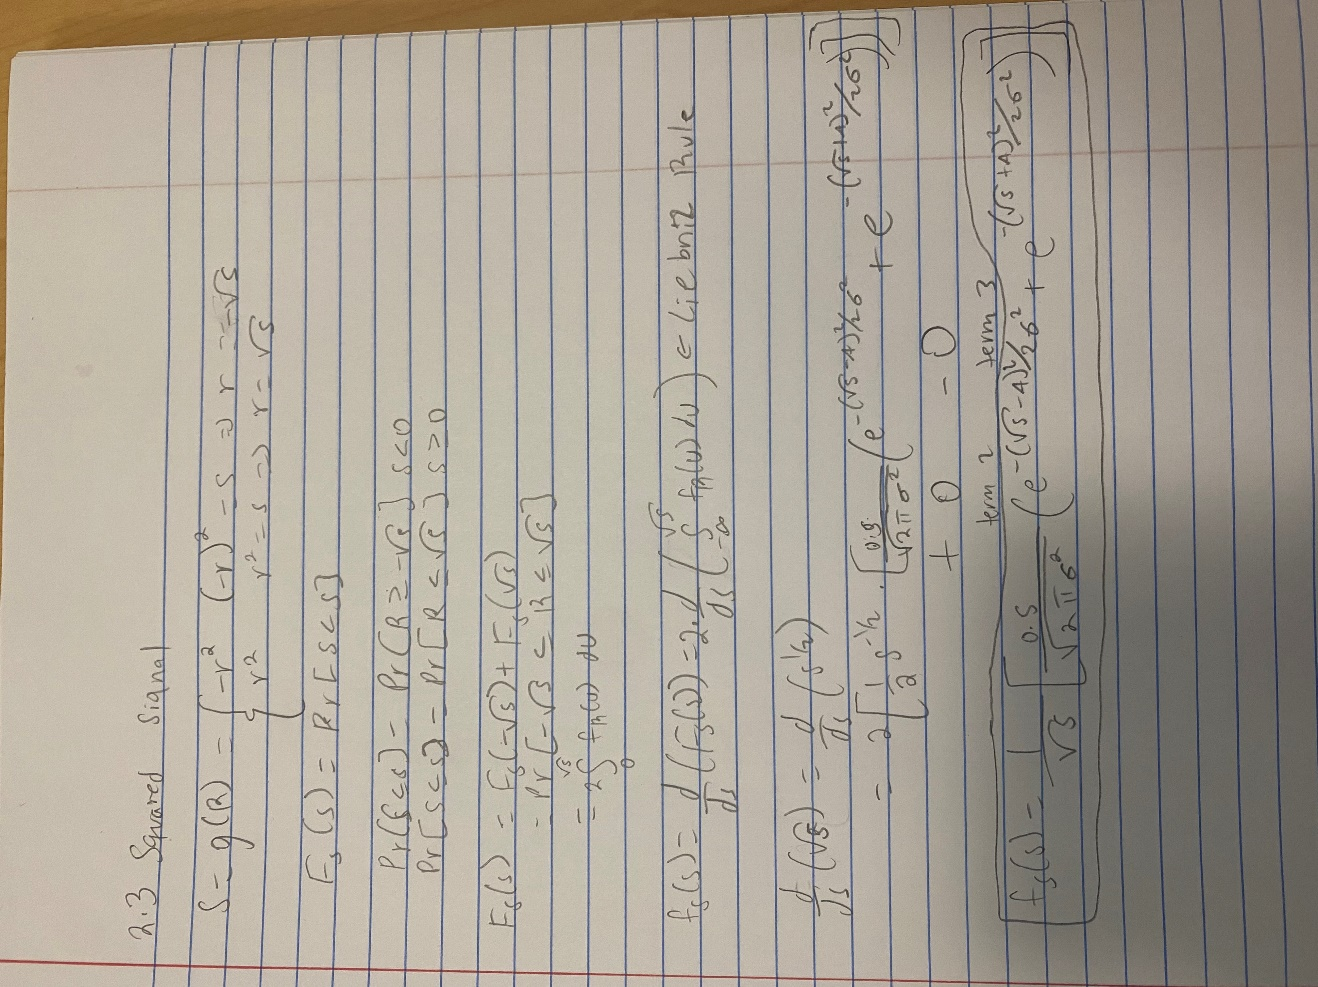 2.3 Squared Signal
S = g(R) = { -r² (-r)² = s => r = -√s
r² r² = s => r = √s
F_s(s) = Pr[S<s]
Pr[S<s] = Pr[R ≥ -√s] s<0
Pr[S<s] = Pr[R < √s] s>0
F_s(s) = F_s(-√s) + F_s(√s)
= Pr[-√s < R ≤ √s]
= 2∫₀^√s f_R(u) du
f_s(s) = d/ds (F_s(s)) = 2·d/ds (∫_-∞^√s f_R(u) du) < Liebniz Rule
d/ds (√s) = d/ds (s^1/2)
= 2[1/2 s^-1/2 · [0.5/√2πσ² (e^-(√s-A)²/2σ² + e^-(√s+A)²/2σ²)]]
+ 0 - 0
term 2 term 3
f_s(s) = 1/√s [0.5/√2πσ² (e^-(√s-A)²/2σ² + e^-(√s+A)²/2σ²)]